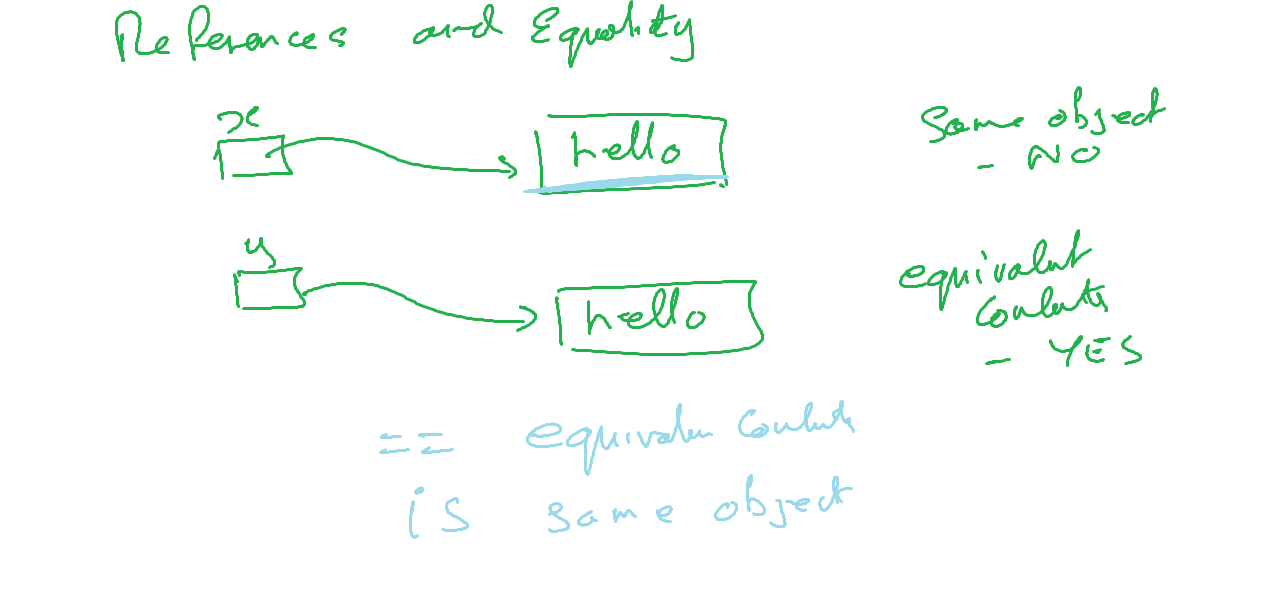 References and Equality
x
hello
Same object
- NO
y
hello
equivalent
contents
- YES
== equivalen contents
is same object